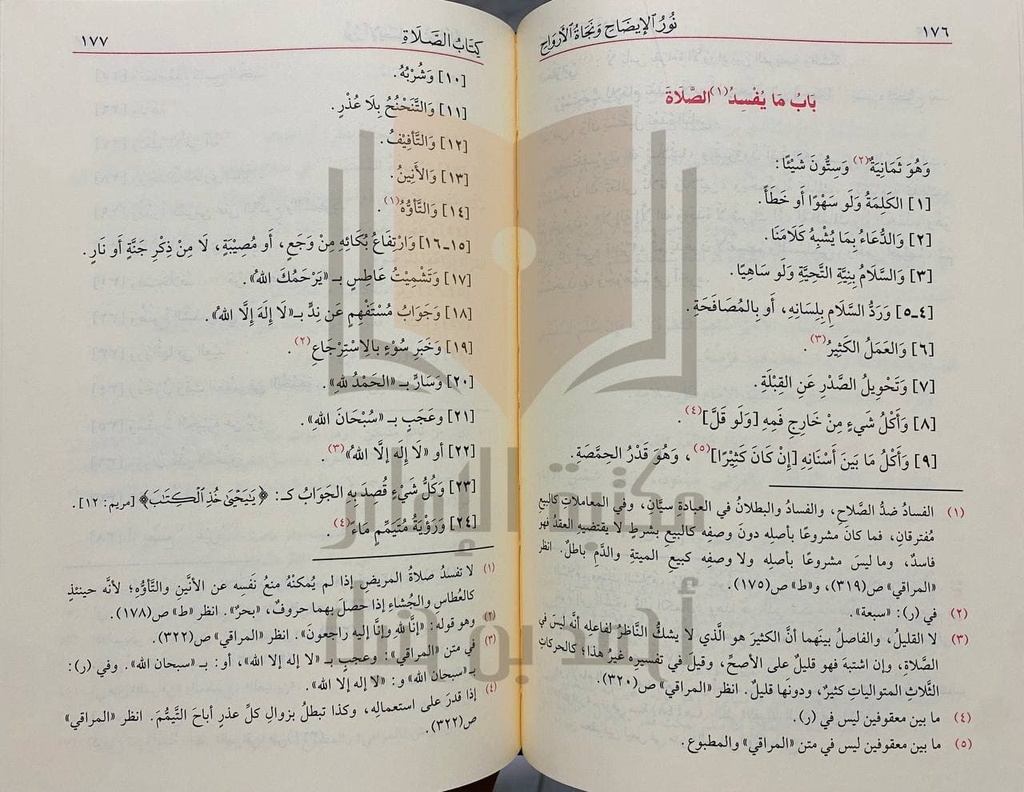 ١٧٦ نُورُ الإِيضَاحِ وَنَجَاةُ الأَرْوَاحِ
بَابُ مَا يُفْسِدُ(١) الصَّلَاةَ
وَهُوَ ثَمَانِيَةٌ(٢) وَسِتُّونَ شَيْئًا:
[١] الكَلِمَةُ وَلَو سَهْوًا أَو خَطَأً.
[٢] وَالدُّعَاءُ بِمَا يُشْبِهُ كَلَامَنَا.
[٣] وَالسَّلَامُ بِنِيَّةِ التَّحِيَّةِ وَلَو سَاهِيًا.
[٤ـ٥] وَرَدُّ السَّلَامِ بِلِسَانِهِ، أَو بِالمُصَافَحَةِ.
[٦] وَالعَمَلُ الكَثِيرُ(٣).
[٧] وَتَحْوِيلُ الصَّدْرِ عَنِ القِبْلَةِ.
[٨] وَأَكْلُ شَيءٍ مِنْ خَارِجِ فَمِهِ [وَلَو قَلَّ](٤).
[٩] وَأَكْلُ مَا بَينَ أَسْنَانِهِ [إِنْ كَانَ كَثِيرًا](٥)، وَهُوَ قَدْرُ الحِمَّصَةِ.
(١) الفسادُ ضدُّ الصَّلاحِ، والفسادُ والبطلانُ في العبادةِ سيَّانِ، وفي المعاملاتِ كالبيعِ
مُفترقانِ، فما كانَ مشروعًا بأصلِه دونَ وصفِه كالبيعِ بشرطٍ لا يقتضيهِ العقدُ فهو
فاسدٌ، وما ليسَ مشروعًا بأصلِه ولا وصفِه كبيعِ الميتةِ والدَّمِ باطلٌ. انظر
«المراقي» ص(٣١٩)، و«ط» ص(١٧٥).
(٢) في (ر): «سبعة».
(٣) لا القليلُ، والفاصلُ بينهما أنَّ الكثيرَ هو الَّذي لا يشكُّ النَّاظرُ لفاعلِه أنَّه ليسَ في
الصَّلاةِ، وإن اشتبهَ فهو قليلٌ على الأصحِّ، وقيلَ في تفسيرِه غيرُ هذا؛ كالحركاتِ
الثَّلاثِ المتوالياتِ كثيرٌ، ودونَها قليلٌ. انظر «المراقي» ص(٣٢٠).
(٤) ما بين معقوفين ليس في (ر).
(٥) ما بين معقوفين ليس في متن «المراقي» والمطبوع.
كِتَابُ الصَّلَاةِ ١٧٧
[١٠] وَشُرْبُهُ.
[١١] وَالتَّنَحْنُحُ بِلَا عُذْرٍ.
[١٢] وَالتَّأْفِيفُ.
[١٣] وَالأَنِينُ.
[١٤] وَالتَّأَوُّهُ(١).
[١٥ـ١٦] وَارْتِفَاعُ بُكَائِهِ مِنْ وَجَعٍ، أَو مُصِيبَةٍ، لَا مِنْ ذِكْرِ جَنَّةٍ أَو نَارٍ.
[١٧] وَتَشْمِيتُ عَاطِسٍ بـ «يَرْحَمُكَ اللهُ».
[١٨] وَجَوَابُ مُسْتَفْهِمٍ عَن نِدٍّ بـ«لَا إِلَهَ إِلَّا اللهُ».
[١٩] وَخَبَرِ سُوْءٍ بِالِاسْتِرْجَاعِ(٢).
[٢٠] وَسَارٍّ بـ «الحَمْدُ للهِ».
[٢١] وعَجَبٍ بـ «سُبْحَانَ اللهِ».
[٢٢] أو «لَا إِلَه إِلَّا اللهُ»(٣).
[٢٣] وَكُلُّ شَيْءٍ قُصِدَ بِهِ الجَوَابُ كـ: ﴿يَـٰيَحْيَىٰ خُذِ ٱلْكِتَـٰبَ﴾ [مريم: ١٢].
[٢٤] وَرُؤْيَةُ مُتَيَمِّمٍ مَاءً(٤).
(١) لا تفسدُ صلاةُ المريضِ إذا لم يُمكنْهُ منعُ نفسَه عن الأنينِ والتَّأوُّهِ؛ لأنَّه حينئذٍ
كالعُطاسِ والجُشاءِ إذا حصلَ بهما حروفٌ، «بحرٌ». انظر «ط» ص(١٧٨).
(٢) وهو قوله: «إنَّا للهِ وإنَّا إليه راجعونَ». انظر «المراقي» ص(٣٢٢).
(٣) في متن «المراقي»: وعجبٍ بـ «لا إله إلا الله»، أو: بـ «سبحان الله». وفي (ر):
بـ«سبحان الله» و: «لا إله إلا الله».
(٤) إذا قدرَ على استعمالِه، وكذا تبطلُ بزوالِ كلِّ عذرٍ أباحَ التَّيمُّمَ. انظر «المراقي»
ص(٣٢٢).
مكتبة الإمام
أحمد بن حنبل